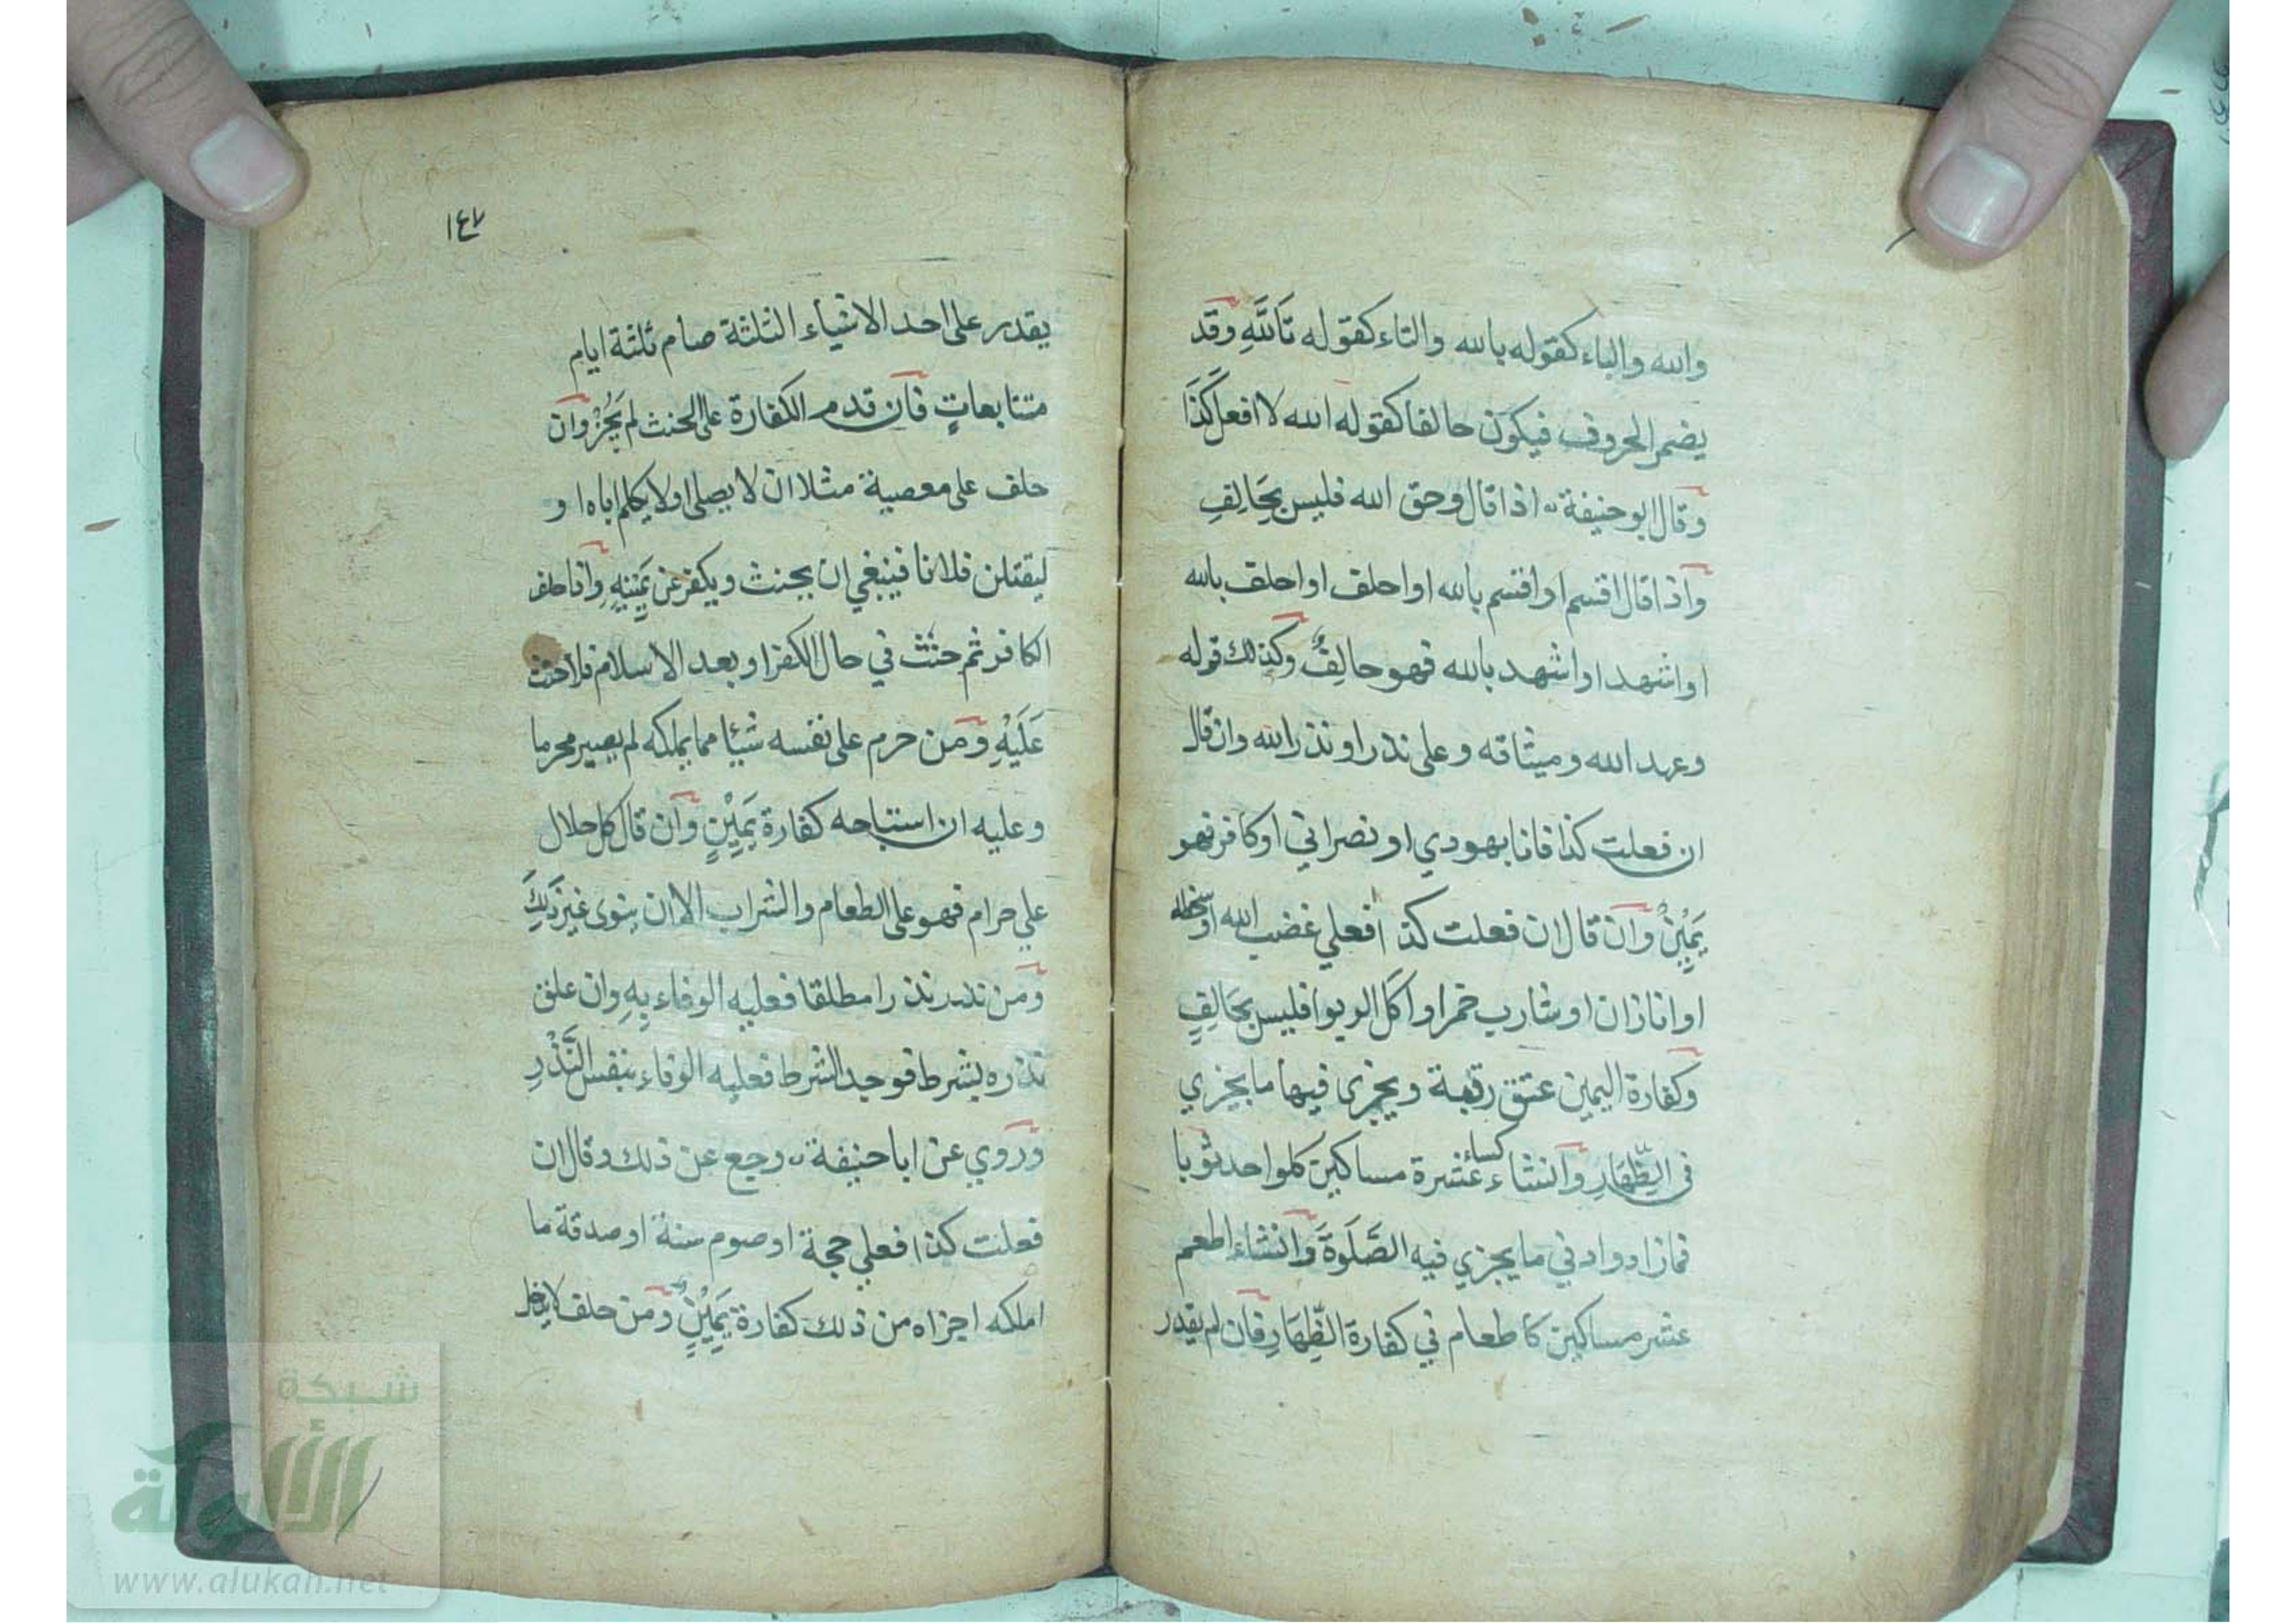 والله والباء كقوله بالله والتاء كقوله تَاللَّهِ وقد
يضمر الحروف فيكون حالفا كقوله الله لا افعل كَذَا
وقال ابو حنيفة اذا قال وحق الله فليس بِحَالِفِ
واذا قال اقسم او اقسم بالله او احلف او احلف بالله
او اشهد او اشهد بالله فهو حالِفٌ وكذلك قوله
وعهد الله وميثاقه وعلى نذر او نذر الله وان قال
ان فعلت كذا فانا يهودي او نصراني او كافر فهو
يَمِيْنٌ وان قال ان فعلت كذا فعلي غضب الله او سخطه
او انا زان او شارب خمر او اكل الربوا فليس بِحَالِفٍ
وكفارة اليمين عتق رقبة ويجزى فيها ما يجزي
في الظِّهَارِ وانشاء كساء عشرة مساكين كلواحد ثوبا
فمازاد وادني ما يجزي فيه الصَّلَوةَ وانشاء اطعم
عشر مساكين كاطعام في كفارة الظِّهَارِ فان لم يقدر
١٤٧
يقدر على احد الاشياء الثلثة صام ثلثة ايام
متتابعاتٍ فان قدم الكفارة على الحنث لم يَجُزْ وان
حلف على معصية مثلا ان لا يصلى او لا يكلم اباه او
ليقتلن فلانا فينبغي ان يحنث ويكفر عن يَمِيْنِهِ واذا حلف
الكافر ثم حنث في حال الكفر او بعد الاسلام فلا حنث
عَلَيْهِ ومن حرم على نفسه شيئا مما يملكه لم يصير محرما
وعليه ان استباحه كفارة يَمِيْنٍ وان قال كل حلال
علي حرام فهو على الطعام والشراب الا ان ينوى غير ذَلِكَ
ومن نذر نذرا مطلقا فعليه الوفاء بِهِ وان علق
نذره بشرط فوجد الشرط فعليه الوفاء بنفس النَّذْرِ
وروي عن ابا حنيفة رجع عن ذلك وقال ان
فعلت كذا فعلي حجة او صوم سنة او صدقة ما
املكه اجزاه من ذلك كفارة يَمِيْنٍ ومن حلف لا يدخل
شبكة
الألوكة
www.alukah.net